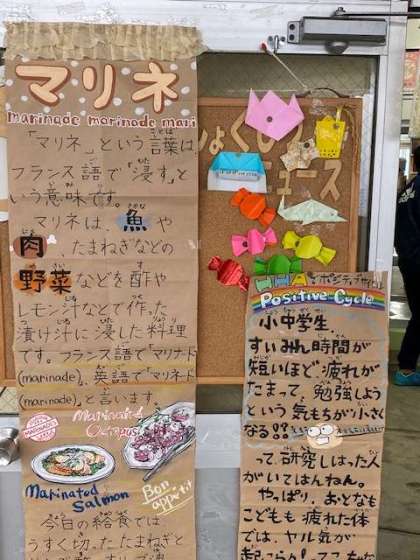 マリネ
marinade marinade mari
「マリネ」という言葉は
フランス語で「浸す」と
いう意味です。
マリネは、魚や
肉 たまねぎなどの
野菜などを酢や
レモン汁などで作った
漬け汁に浸した料理
です。フランス語で「マリナード
(marinade)、英語で「マリネード
(marinade)」と言います。
Marinated
Octopus
Marinated
Salmon
Bon
appetit
今日の給食では、
うすく切ったたまねぎと
ニュース
Positive Cycle
小中学生、
すいみん時間が
短いほど疲れが
たまって、勉強しよう
という気もちが小さく
なる!?
って、研究しはった人
がいてはんねん。
やっぱり、おとなも
こどもも疲れた体
では、ヤル気が